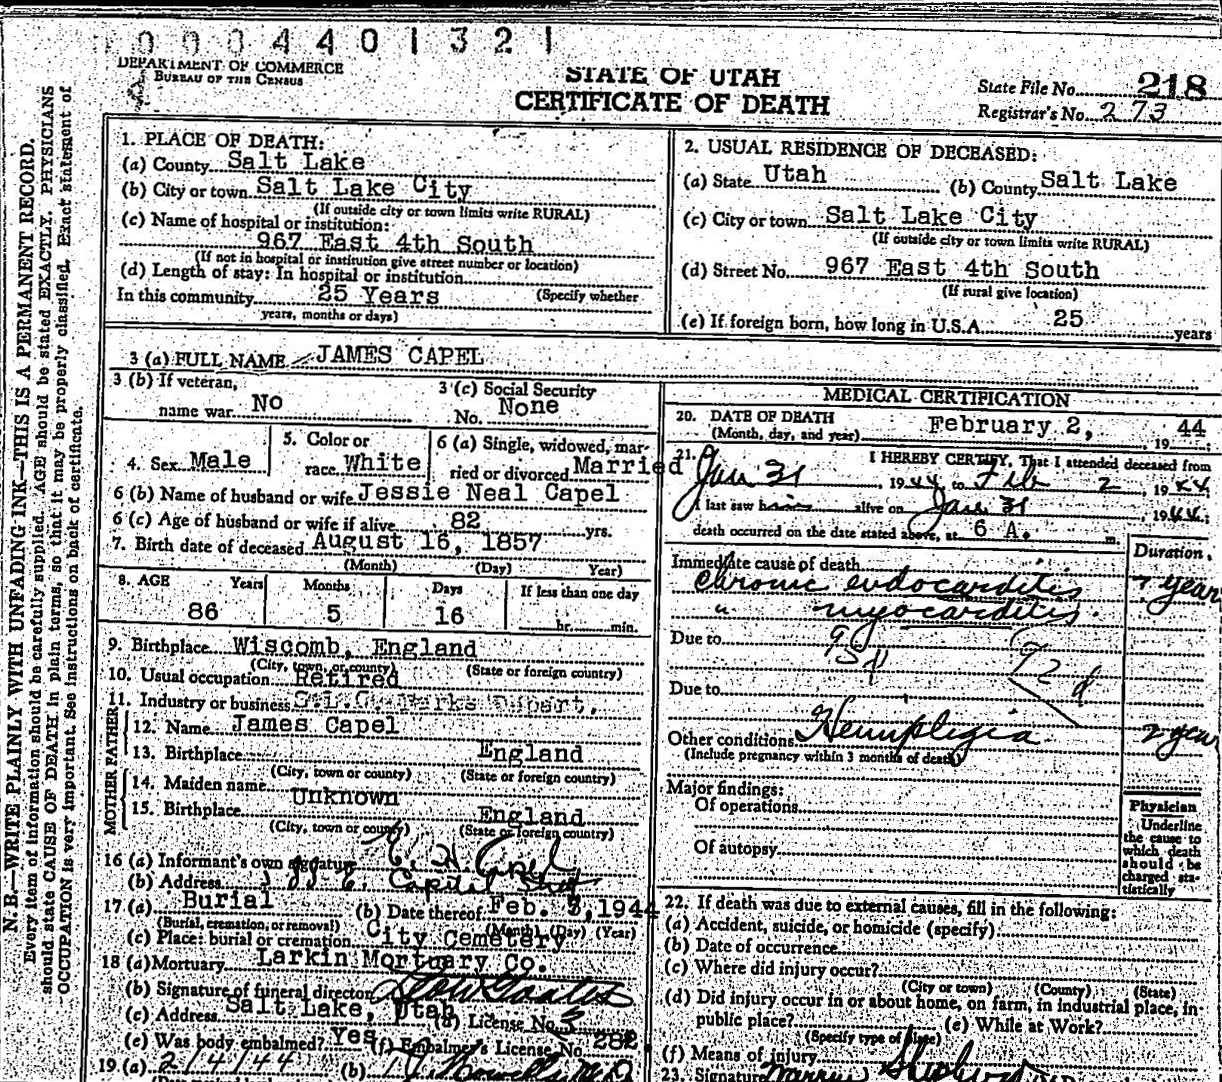 0004401321
DEPARTMENT OF COMMERCE
BUREAU OF THE CENSUS
STATE OF UTAH
CERTIFICATE OF DEATH
State File No. 218
Registrar's No. 273
N. B.—WRITE PLAINLY WITH UNFADING INK—THIS IS A PERMANENT RECORD.
Every item of information should be carefully supplied. AGE should be stated EXACTLY. PHYSICIANS
should state CAUSE OF DEATH in plain terms, so that it may be properly classified. Exact statement of
OCCUPATION is very important. See instructions on back of certificate.
1. PLACE OF DEATH:
(a) County Salt Lake
(b) City or town Salt Lake City
(If outside city or town limits write RURAL)
(c) Name of hospital or institution:
967 East 4th South
(If not in hospital or institution give street number or location)
(d) Length of stay: In hospital or institution
In this community 25 Years (Specify whether
years, months or days)
2. USUAL RESIDENCE OF DECEASED:
(a) State Utah (b) County Salt Lake
(c) City or town Salt Lake City
(If outside city or town limits write RURAL)
(d) Street No. 967 East 4th South
(If rural give location)
(e) If foreign born, how long in U.S.A. 25 years
3 (a) FULL NAME JAMES CAPEL
3 (b) If veteran, name war No
3 (c) Social Security No. None
4. Sex Male
5. Color or race White
6 (a) Single, widowed, married or divorced Married
6 (b) Name of husband or wife Jessie Neal Capel
6 (c) Age of husband or wife if alive 82 yrs.
7. Birth date of deceased August 16, 1857
(Month) (Day) Year)
8. AGE Years Months Days If less than one day
86 5 16 hr. min.
9. Birthplace Wiscomb, England
(City, town, or county) (State or foreign country)
10. Usual occupation Retired
11. Industry or business
FATHER
12. Name James Capel
13. Birthplace England
(City, town or county) (State or foreign country)
MOTHER
14. Maiden name Unknown
15. Birthplace England
(City, town or county) (State or foreign country)
16 (a) Informant's own signature Capel
(b) Address E. Capitol
17 (a) Burial (b) Date thereof Feb. 1944
(Burial, cremation, or removal) (Month) (Day) (Year)
(c) Place: burial or cremation City Cemetery
18 (a) Mortuary Larkin Mortuary Co.
(b) Signature of funeral director
(c) Address Salt Lake, Utah (d) License No. 3
(e) Was body embalmed? Yes (f) Embalmer's License No. 282
19 (a) 2/4/44 (b)
MEDICAL CERTIFICATION
20. DATE OF DEATH
(Month, day, and year) February 2, 1944
21. I HEREBY CERTIFY, That I attended deceased from
Jan 31, 1944 to Feb 2, 1944
I last saw him alive on Jan 31 1944
death occurred on the date stated above, at 6 A. m.
Immediate cause of death Duration
chronic endocarditis year
" myocarditis
Due to
Due to
Other conditions Hemiplegia 2 year
(Include pregnancy within 3 months of death)
Major findings:
Of operations
Of autopsy
Physician
Underline
the cause to
which death
should be
charged sta-
tistically
22. If death was due to external causes, fill in the following:
(a) Accident, suicide, or homicide (specify)
(b) Date of occurrence
(c) Where did injury occur?
(City or town) (County) (State)
(d) Did injury occur in or about home, on farm, in industrial place, in
public place? (e) While at Work?
(Specify type of place)
(f) Means of injury
23. Signature